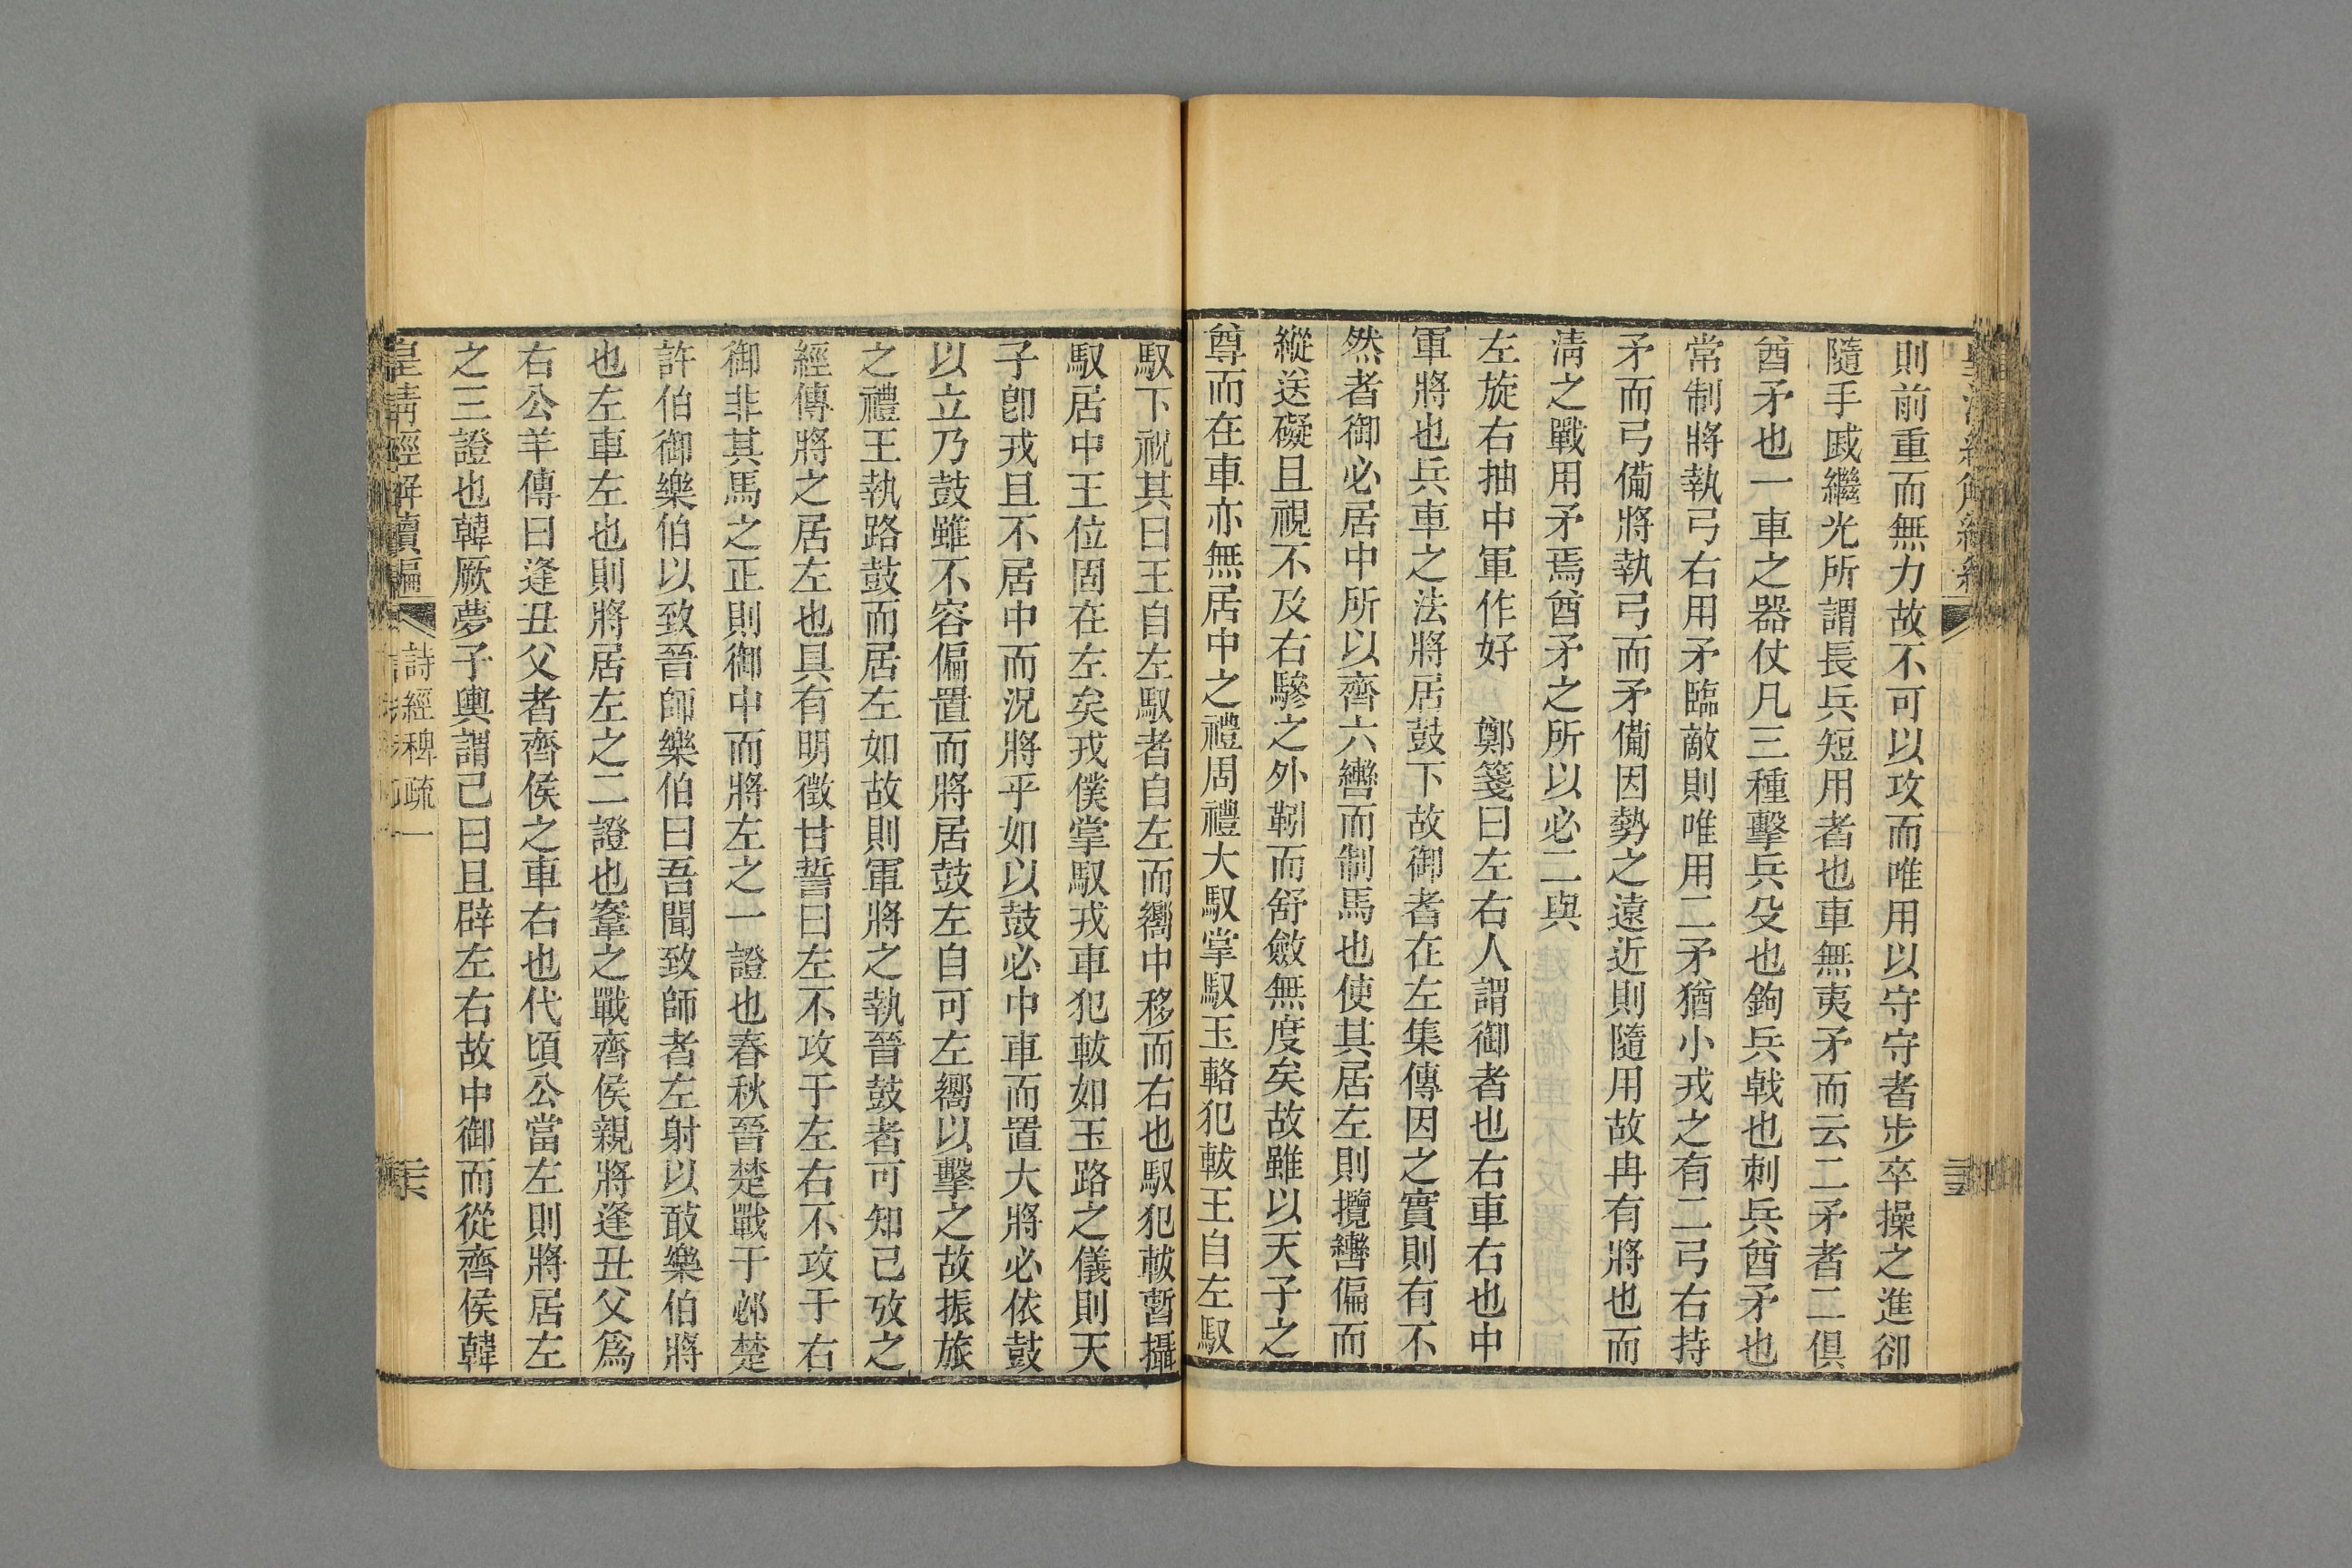 則前重而無力故不可以攻而唯用以守守者步卒操之進卻
隨手戚繼光所謂長兵短用者也車無夷矛而云二矛者二俱
酋矛也一車之器仗凡三種擊兵殳也鉤兵戟也刺兵酋矛也
常制將執弓右用矛臨敵則唯用二矛猶小戎之有二弓右持
矛而弓備將執弓而矛備因勢之遠近則隨用故冉有將也而
淸之戰用矛焉酋矛之所以必二與
左旋右抽中軍作好　鄭箋曰左右人謂御者也右車右也中
軍將也兵車之法將居鼓下故御者在左集傳因之實則有不
然者御必居中所以齊六轡而制馬也使其居左則攬轡偏而
縱送礙且視不及右驂之外靷而舒斂無度矣故雖以天子之
尊而在車亦無居中之禮周禮大馭掌馭玉輅犯軷王自左馭
馭下祝其曰王自左馭者自左而嚮中移而右也馭犯軷暫攝
馭居中王位固在左矣戎僕掌馭戎車犯軷如玉路之儀則天
子卽戎且不居中而況將乎如以鼓必中車而置大將必依鼓
以立乃鼓雖不容偏置而將居鼓左自可左嚮以擊之故振旅
之禮王執路鼓而居左如故則軍將之執晉鼓者可知己攷之
經傳將之居左也具有明徵甘誓曰左不攻于左右不攻于右
御非其馬之正則御中而將左之一證也春秋晉楚戰于邲楚
許伯御樂伯以致晉師樂伯曰吾聞致師者左射以菆樂伯將
也左車左也則將居左之二證也鞌之戰齊侯親將逢丑父爲
右公羊傳曰逢丑父者齊侯之車右也代頃公當左則將居左
之三證也韓厥夢子輿謂己曰且辟左右故中御而從齊侯韓
皇淸經解續編
詩經稗疏一